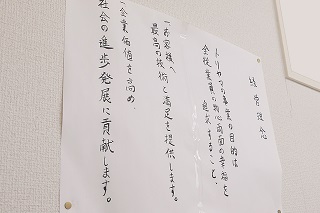 経営理念
トリカツの事業の目的は
全従業員の物心両面の幸福を
追求すること、
一お客様へ
最高の技術と満足を提供します。
一企業価値を高め、
社会の進歩発展に貢献します。